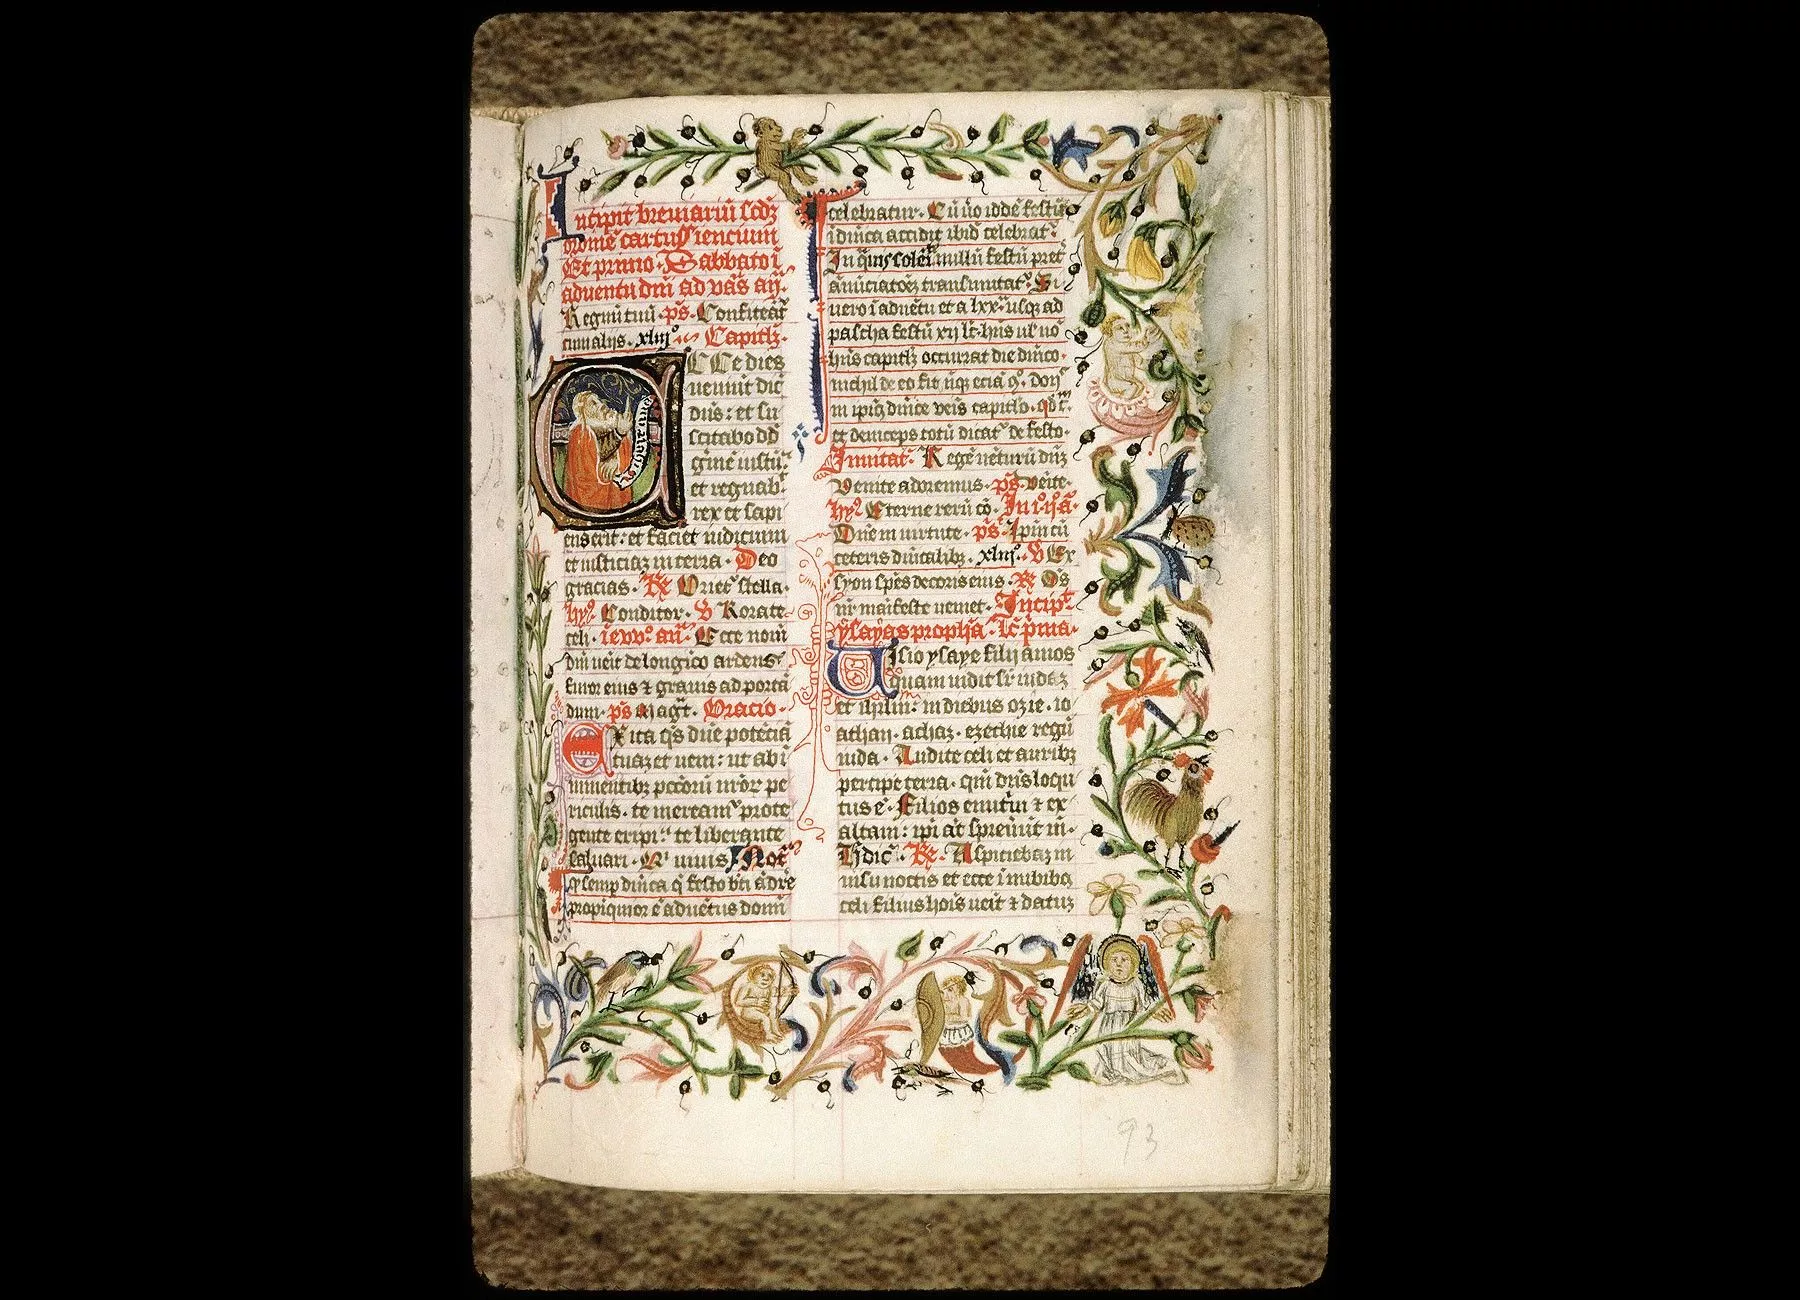 Incipit breviariu scdz
ordine cartusiencium
Et primo. Sabbato i
adventu dni ad vas an.
Regnu tuu. ps. Confiteat
cum alijs. xliij. Capitlz.
ECce dies
veniut dic
dns: et su
scitabo dd
gme iustu
et regnab.
rex et sapi
ens erit: et faciet iudicium
et iusticiaz in terra. Deo
gracias. R Oriet stella.
hy Conditor. V Rorate
celi. i evvo an. Ecce nom
dni veit de longico ardens
furor eius z gravis ad porta
dum. ps Magt. Oracio.
Exita qs dne potecia
tuaz et veni: ut ab i
minentibz pctoru nror pe
riculis. te meream prote
gente eripi. te liberante
salvari. Q vivis. Not
q semp dnica q festo bti adre
propiquior e advetus domi
celebratur. Cu vo idde festu
i dnica accidit ibid celebrat.
In quis colei nullu festu pret
anuciatoez transmutat. Si
vero i advetu et a lxx usqz ad
pascha festu xij lt hns ul no
hns capitlz occurrat die dnico.
nichil de eo fit
in ipis dnice veis capitlo.
et deinceps totu dicat de festo.
Invitat. Rege veturu dnz
Venite adoremus. ps. veite.
hy Eterne reru co. In i n a.
Dne in virtute. ps. Ipm cu
ceteris dnicalibz. xliij. V Ex
syon spes decoris eius. R Ds
nr maifeste veniet. Incipt
ysayas propha. Lc pma.
VIsio ysaye filij amos
quam vidit sr iudaz
et ihrlm: in diebus ozie. io
athan. achaz. ezechie regu
iuda. Audite celi et auribz
percipe terra. qm dns loqu
tus e. Filios enutrivi z ex
altavi: ipi at spreverut m.
H dic. R. Aspiciebaz in
visu noctis et ecce i nubibz
celi filius hois veit z datuz
93